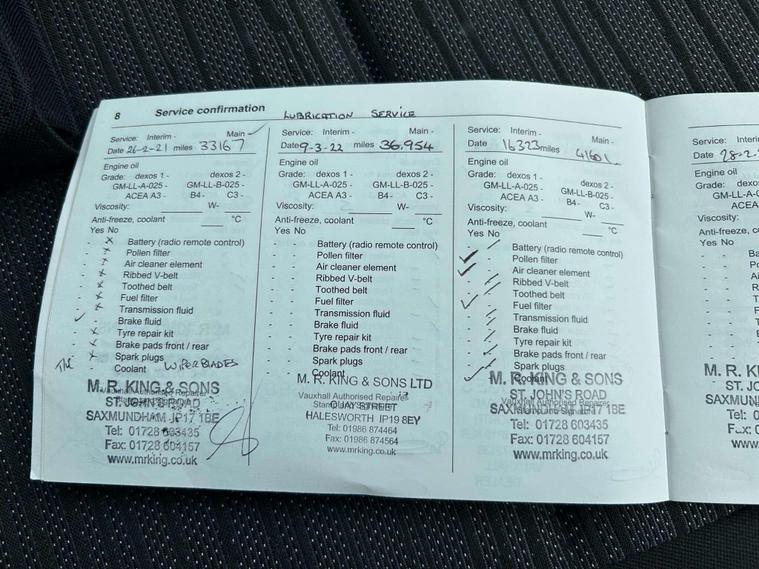 8 Service confirmation LUBRICATION SERVICE
Service: Interim - Main -
Date 26-2-21 miles 33167
Engine oil
Grade: dexos 1 - dexos 2 -
GM-LL-A-025 - GM-LL-B-025 -
ACEA A3 - B4 - C3 -
Viscosity: W-
Anti-freeze, coolant °C
Yes No
Battery (radio remote control)
Pollen filter
Air cleaner element
Ribbed V-belt
Toothed belt
Fuel filter
Transmission fluid
Brake fluid
Tyre repair kit
Brake pads front / rear
Spark plugs
Coolant WIPER BLADES
M. R. KING & SONS
Vauxhall Authorised Repairer
ST. JOHN'S ROAD
SAXMUNDHAM JP17 1BE
Tel: 01728 603435
Fax: 01728 604157
www.mrking.co.uk
Service: Interim - Main -
Date 9-3-22 miles 36,954
Engine oil
Grade: dexos 1 - dexos 2 -
GM-LL-A-025 - GM-LL-B-025 -
ACEA A3 - B4 - C3 -
Viscosity: W-
Anti-freeze, coolant °C
Yes No
Battery (radio remote control)
Pollen filter
Air cleaner element
Ribbed V-belt
Toothed belt
Fuel filter
Transmission fluid
Brake fluid
Tyre repair kit
Brake pads front / rear
Spark plugs
Coolant
M. R. KING & SONS LTD
Vauxhall Authorised Repairer
QUAY STREET
HALESWORTH IP19 8EY
Tel: 01986 874464
Fax: 01986 874564
www.mrking.co.uk
Service: Interim - Main -
Date 16323 miles 41601
Engine oil
Grade: dexos 1 - dexos 2 -
GM-LL-A-025 - GM-LL-B-025 -
ACEA A3 - B4 - C3 -
Viscosity: W-
Anti-freeze, coolant °C
Yes No
Battery (radio remote control)
Pollen filter
Air cleaner element
Ribbed V-belt
Toothed belt
Fuel filter
Transmission fluid
Brake fluid
Tyre repair kit
Brake pads front / rear
Spark plugs
Coolant
M. R. KING & SONS
ST. JOHN'S ROAD
Vauxhall Authorised Repairer
SAXMUNDHAM IP17 1BE
Tel: 01728 603435
Fax: 01728 604157
www.mrking.co.uk
Service: Interi
Date 28-2-
Engine oil
Grade: dexo
GM-LL-A-
ACEA
Viscosity:
Anti-freeze, c
Yes No